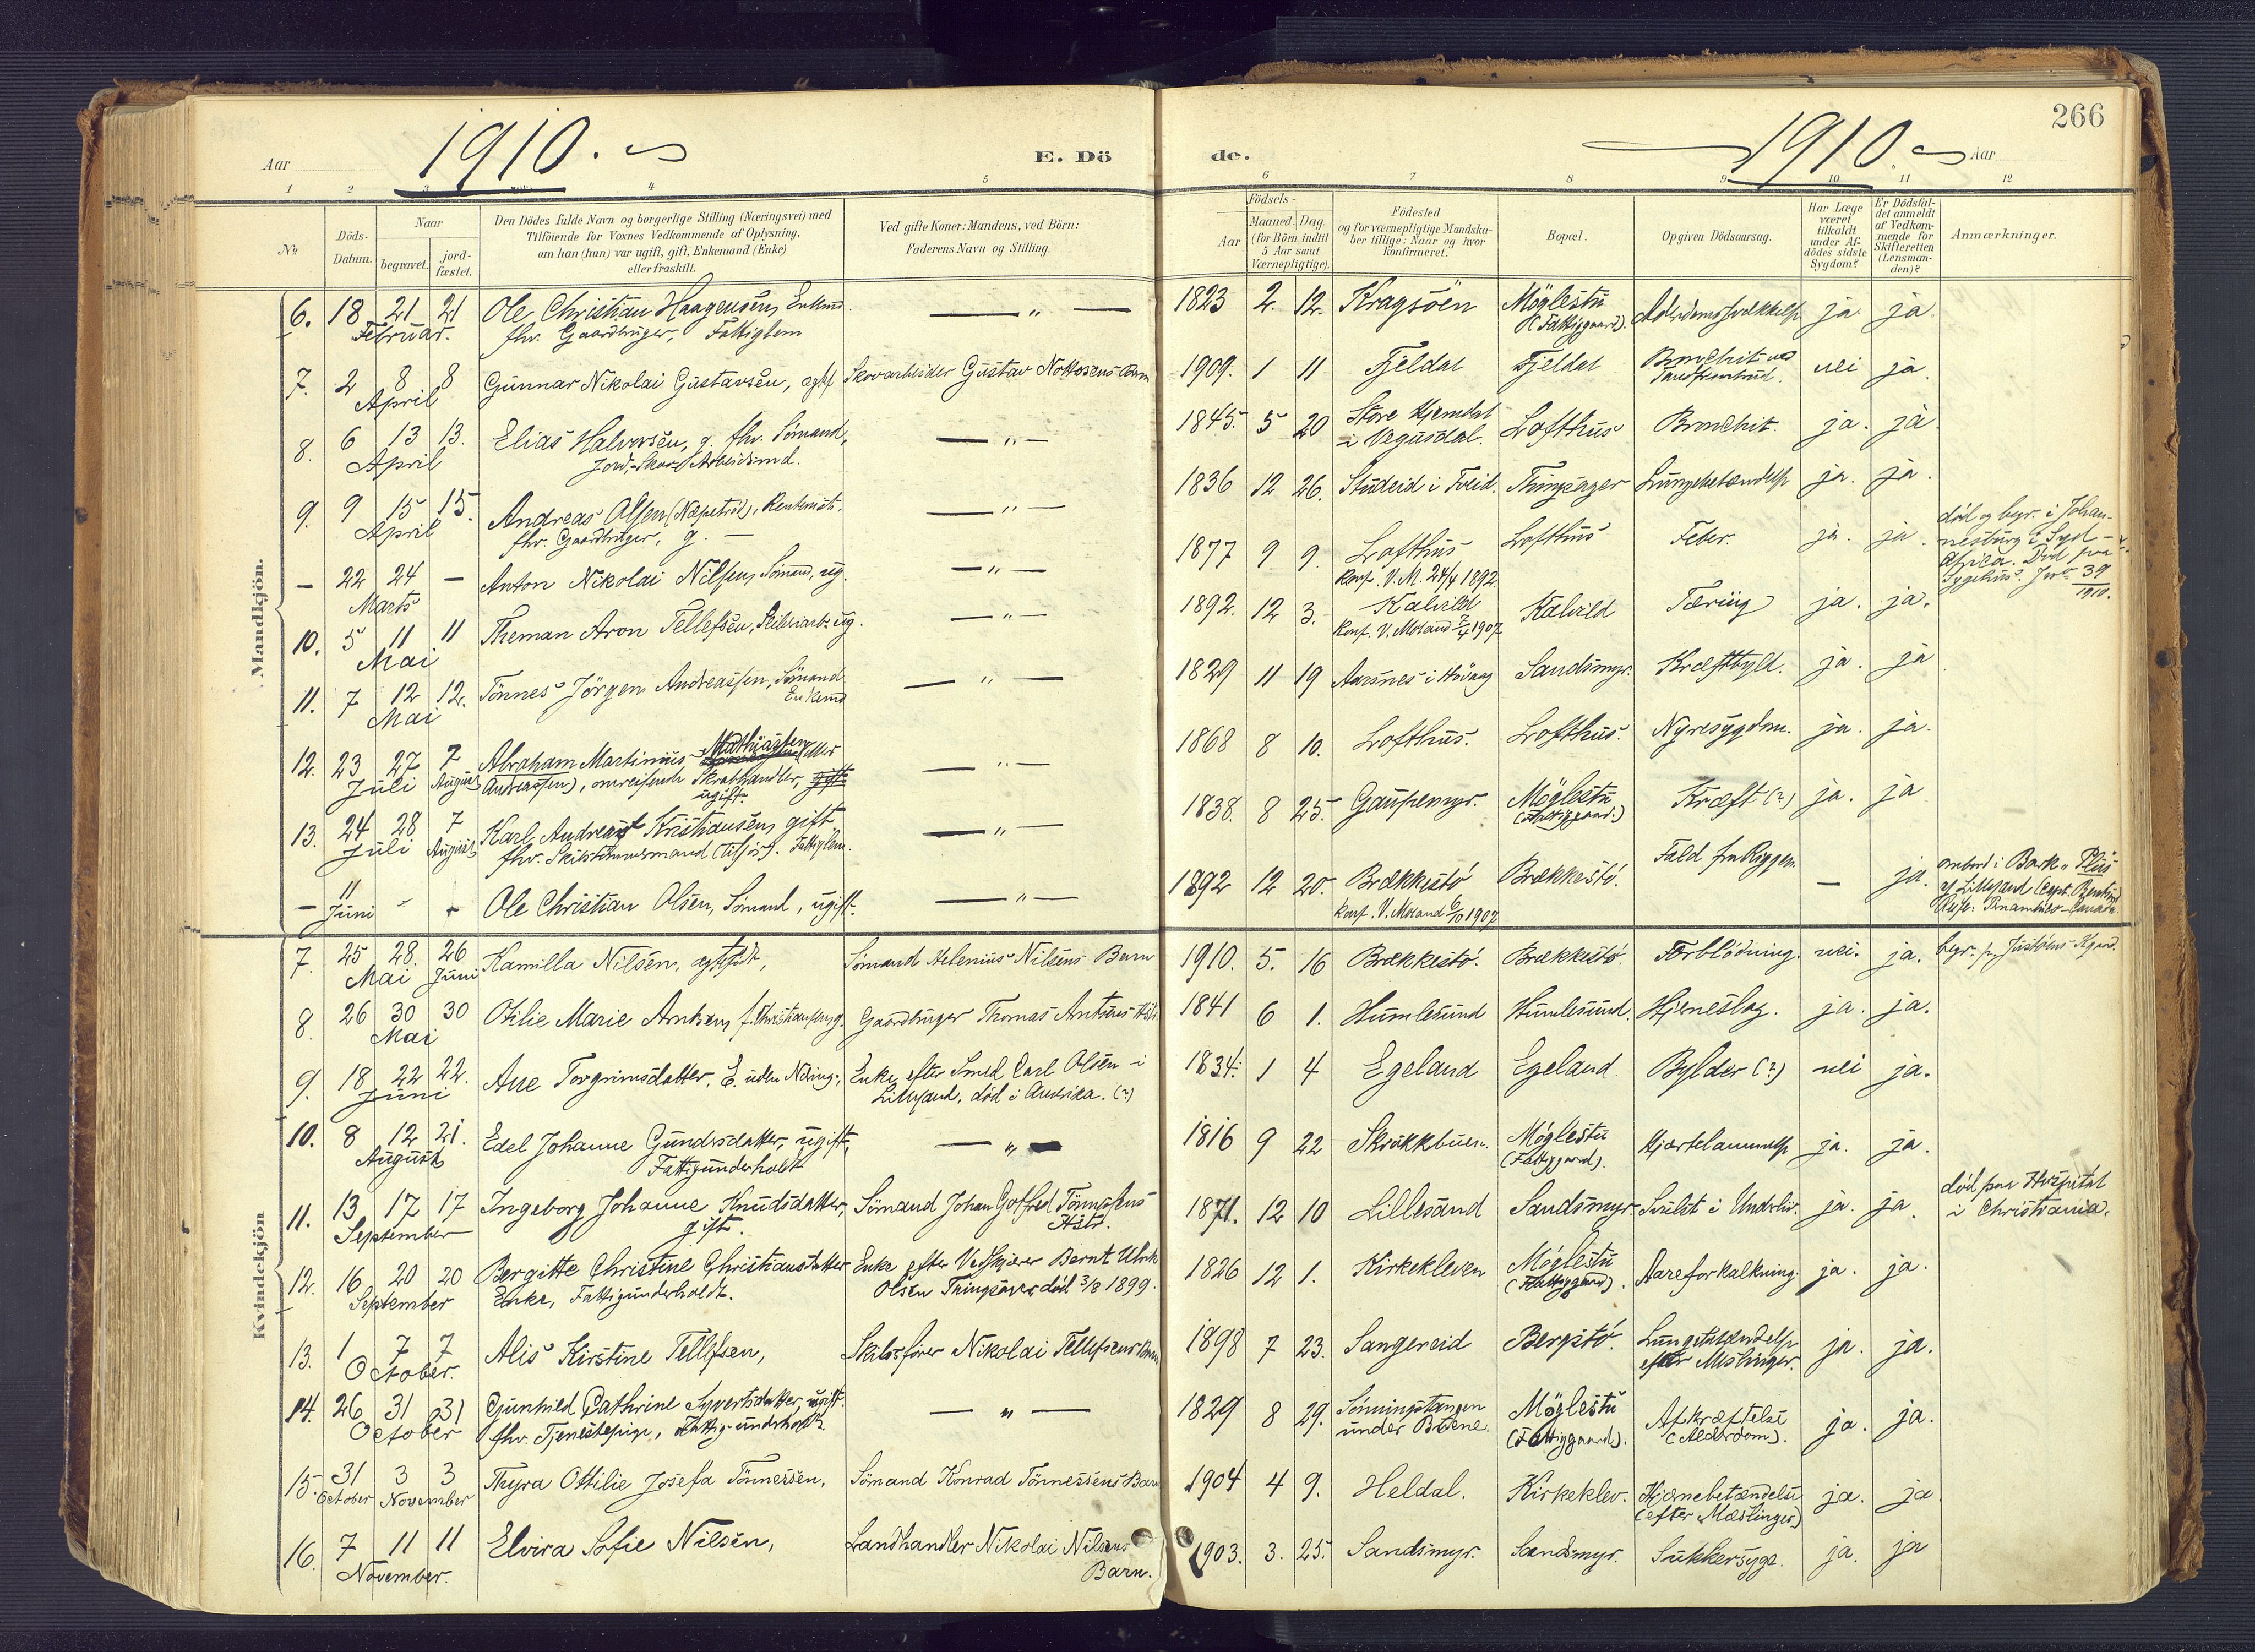 266
Aar 1910.
E. Dö
de.
1910. Aar
1 2 3 4 5 6 7 8 9 10 11 12
№
Döds-
Datum.
Naar
begravet.
jord-
fæstet.
Den Dödes fulde Navn og borgerlige Stilling (Næringsvei) med
Tilföiende for Voxnes Vedkommende af Oplysning,
om han (hun) var ugift, gift, Enkemand (Enke)
eller fraskilt.
Ved gifte Koner: Mandens, ved Börn:
Faderens Navn og Stilling.
Födsels-
Aar
Maaned. Dag.
(for Börn indtil
5 Aar samt
Værnepligtige).
Födested
og for værnepligtige Mandska-
ber tillige: Naar og hvor
konfirmeret.
Bopæl.
Opgiven Dödsaarsag.
Har Læge
været
tilkaldt
under Af-
dödes sidste
Sygdom?
Er Dödsfal-
det anmeldt
af Vedkom-
mende for
Skifteretten
(Lensman-
den)?
Anmærkninger.
Mandkjön.
6. 18 21 21 Ole Christian Haagensen, Enkmd. — " — 1823 2. 12. Kragsöen Möglestu ja. ja.
Februar. fhv. Gaardbruger, Fattiglem (Fattiggaard).
7. 2 8 8 Gunnar Nikolai Gustavsen, Skovarbeider Gustav Nottosens Barn 1909. 1 11 Fjeldal Fjeldal Bronchit nei ja.
April
8. 6 13 13. Elias Halvorsen, g. fhv. Sömand, — " — 1845. 5 20 Store Hjemdal Lofthus Bronchit. ja. ja.
April i Vegusdal.
9. 9 15 15. Andreas Olsen (Næpetrö), — " — 1836 12 26. Studeid i Tveid. Tingsager Lungebetændelse ja. ja.
April fhv. Gaardbruger, g. —
— 22 24 — Anton Nikolai Nilsen, Sömand, ug. — " — 1877 9 9. Lofthus Lofthus Feber. ja. ja.
Marts Konf. V. M. 24/4 1892.
død og begr. i Johan-
nesburg i Syd-
Africa. Död paa
Sygehus. 39
1910.
10. 5 11 11 Theman Aron Tellefsen, ug. — " — 1892. 12 3. Kalvild Kalvild Tæring ja. ja.
Mai Konf. V. Moland 7/4 1907
11. 7 12 12. Tönnes Jörgen Andreassen, Sömand — " — 1829 11 19 Aarsnes i Hövaag Sandsmyr. Kræftbyld. ja. ja
Mai Enkemd
12. 23 27 7 Abraham Martinius Mathiassen (eller — " — 1868 8 10. Lofthus. Lofthus. Nyresygdom. ja. ja.
Juli August Andreassen), omreisende Skraphandler, gift
ugift.
13. 24 28 7 Karl Andreas Kristiansen, gift — " — 1838. 8 25. Gaupemyr. Möglestu Kræft (?) ja. ja
Juli August fhv. Skibstömmermand (tilsjös). Fattiglem. (Fattiggaard.)
— 11 - - Ole Christian Olsen, Sömand, ugift. — " — 1892 12 20. Brækkestö Brækkestö. Fald fra Riggen. — ja.
Juni Konf. V. Moland 6/10 1907
ombord i Bark „Plus"
af Lillesand
Kvindekjön
7. 25 28. 26 Kamilla Nilsen, ægtefödt, Sömand Helenius Nilsens Barn 1910. 5. 16 Brækkestö. Brækkestö. Forblödning. nei. ja. begr. p. Justöens Kgaard.
Mai Juni
8. 26 30 30 Otilie Marie Arntsen, f. Christiansen, g. Gaardbruger Thomas 1841 6 1. Humlesund Humlesund. Hjerneslag. ja. ja.
Mai
9. 18 22 22. Ane Torgrimsdatter, E. uden Næring., Enke efter Smed Carl Olsen i 1834. 1 4 Egeland Egeland Bylder (?) nei ja.
Juni Lillesand, död i Amerika. (?)
10. 8 12 21. Edel Johanne Gundersdatter, ugift, — " — 1816 9 22 Skrukkbuen. Möglestu Hjærtelammelse ja. ja.
August Fattigunderholdt (Fattiggaard).
11. 13 17 17 Ingeborg Johanne Knudsdatter, Sömand Johan Gotfred Tönnesens 1871. 12 10 Lillesand Sandsmyr. Svulst i Underliv. ja. ja.
September gift. Hstr.
död paa Hospital
i Christiania.
12. 16 20 20 Bergitte Christine Christiansdatter Enke efter Vedskjærer Bernt Ulrik 1826 12 1. Kirkekleven Möglestu Aareforkalkning. ja. ja.
September Enke, Fattigunderholdt. Olsen Tingsager, död 3/8 1899. (Fattiggaard).
13. 1 7 7 Alis Kirstine Tellefsen, Skibsförer Nikolai Tellefsens Barn 1898 7 23. Sangereid Bergstö. Lungebetændelse ja. ja.
October. efter Meslinger.
14. 26 31 31 Gunhild Cathrine Syvertsdatter, ugift. — " — 1829 8 29. Sönningstangen Möglestu Afkræftelse ja. ja.
October fhv. Tjenestepige, Fattig-underholdt. under Bröene. (Fattiggaard). (Alderdom).
15. 31 3 3 Thyra Ottilie Josefa Tönnessen. Sömand Konrad Tönnessens Barn 1904 4 9. Heldal. Kirkeklev. Hjernebetændelse ja. ja
October November (efter Mæslinger)
16. 7 11 11 Elvira Sofie Nilsen, Landhandler Nikolai Nilsens 1903. 3. 25. Sandsmyr. Sandsmyr. Sukkersyge. ja. ja
November. Barn.